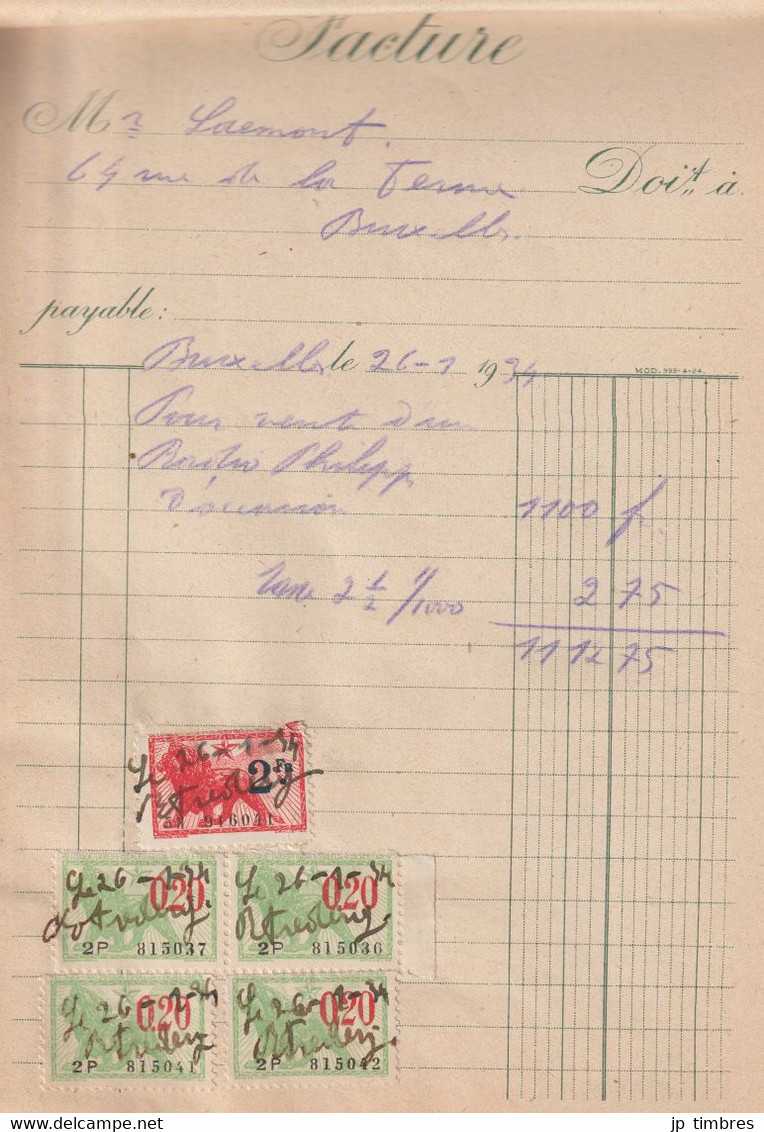 Facture
Mr Laemont.
64 rue de la Ferme
Doit à
Bruxelles.
payable:
Bruxelles le 26-1 1934
MOD. 393-4-24.
Pour vent d'un
Radio Philipp
D'occasion 1100 fr.
taxe 2 1/2 %000 2 75
1112 75
Le 26-1-34
2 Fr
5A 916041
Le 26-1-34
0,20
2P 815037
Le 26-1-34
0,20
2P 815036
Le 26-1-34
0,20
2P 815041
Le 26-1-34
0,20
2P 815042
delcampe.net
jp_timbres